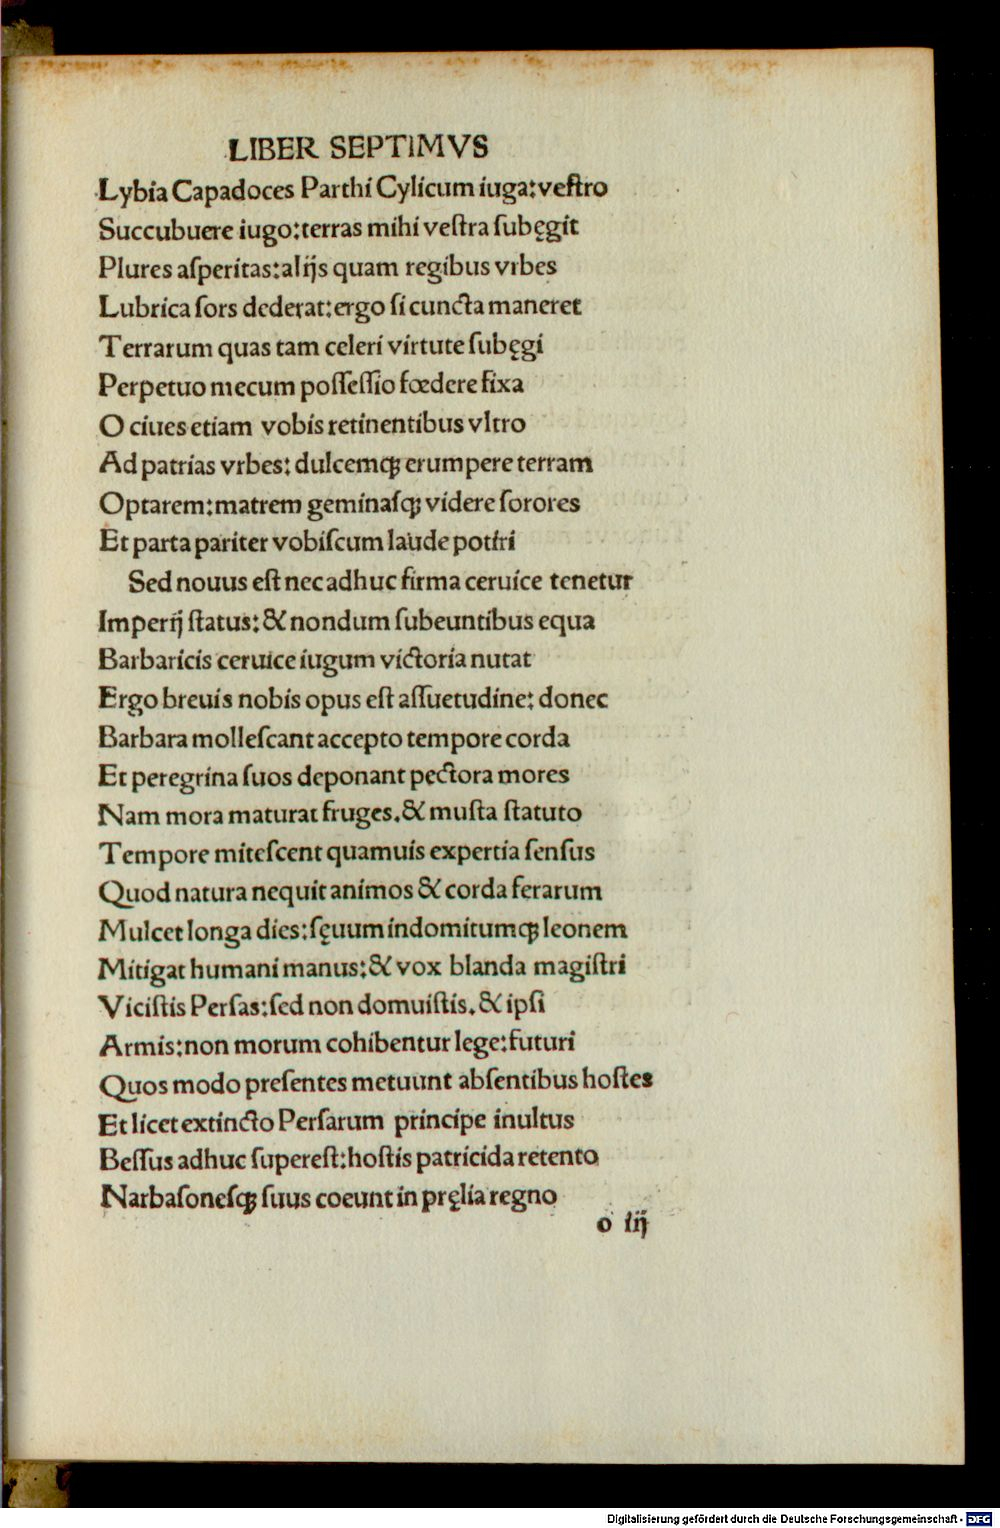 LIBER SEPTIMVS
Lybia Capadoces Parthi Cylicum iuga: veſtro
Succubuere iugo: terras mihi veſtra ſubęgit
Plures aſperitas: alijs quam regibus vrbes
Lubrica ſors dederat: ergo ſi cuncta maneret
Terrarum quas tam celeri virtute ſubęgi
Perpetuo mecum poſſeſſio fœdere fixa
O ciues etiam vobis retinentibus vltro
Ad patrias vrbes: dulcemqꝫ erumpere terram
Optarem: matrem geminaſqꝫ videre ſorores
Et parta pariter vobiſcum laude potiri
Sed nouus eſt nec adhuc firma ceruice tenetur
Imperij ſtatus: & nondum ſubeuntibus equa
Barbaricis ceruice iugum victoria nutat
Ergo breuis nobis opus eſt aſſuetudine: donec
Barbara molleſcant accepto tempore corda
Et peregrina ſuos deponant pectora mores
Nam mora maturat fruges. & muſta ſtatuto
Tempore miteſcent quamuis expertia ſenſus
Quod natura nequit animos & corda ferarum
Mulcet longa dies: ſęuum indomitumqꝫ leonem
Mitigat humani manus: & vox blanda magiſtri
Viciſtis Perſas: ſed non domuiſtis. & ipſi
Armis: non morum cohibentur lege: futuri
Quos modo preſentes metuunt abſentibus hoſtes
Et licet extincto Perſarum principe inultus
Beſſus adhuc ſupereſt: hoſtis patricida retento
Narbaſoneſqꝫ ſuus coeunt in pręlia regno
o iij
Digitalisierung gefördert durch die Deutsche Forschungsgemeinschaft - DFG